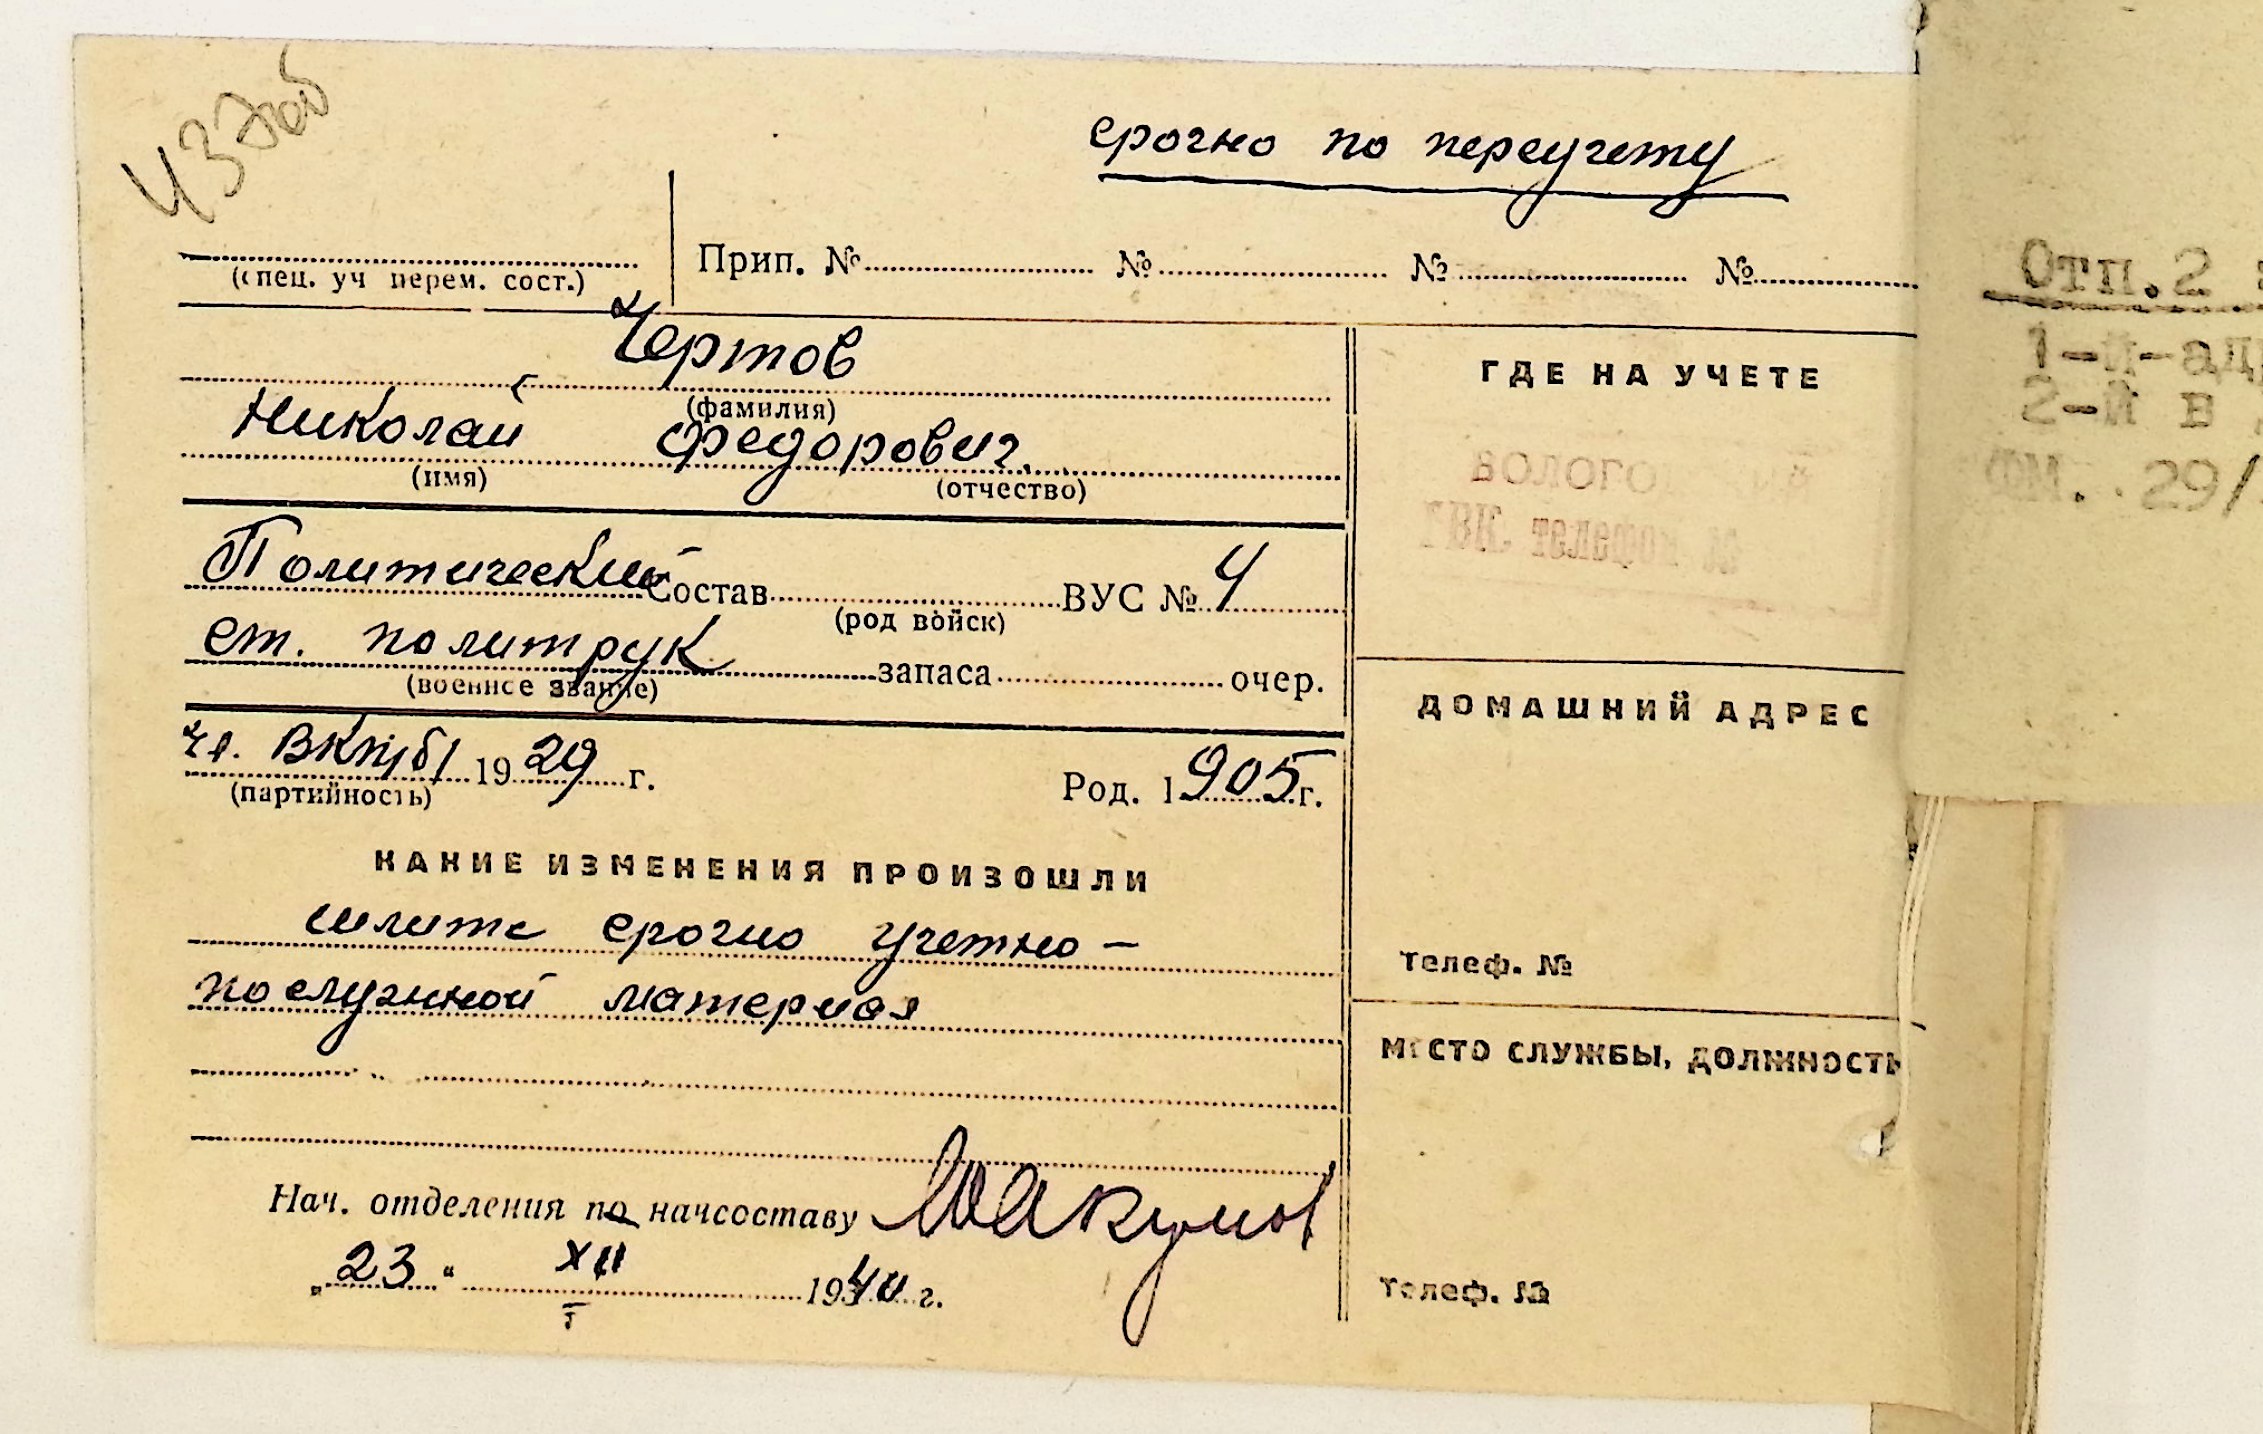 срочно по переучету
Прип. № № № №
(спец. уч перем. сост.)
Чертов
(фамилия)
Николай Федорович
(имя) (отчество)
Политический состав ВУС № 4
(род войск)
ст. политрук запаса очер.
(военное звание)
чл. ВКП(б) 1929 г. Род. 1905 г.
(партийность)
КАКИЕ ИЗМЕНЕНИЯ ПРОИЗОШЛИ
шлите срочно учетно-
послужной материал
Нач. отделения по начсоставу
„23“ XII 1940 г.
ГДЕ НА УЧЕТЕ
ГВК телефон №
ДОМАШНИЙ АДРЕС
Телеф. №
МЕСТО СЛУЖБЫ, ДОЛЖНОСТЬ
Телеф. №
Отп. 2
1-й-ад
2-й в
29/